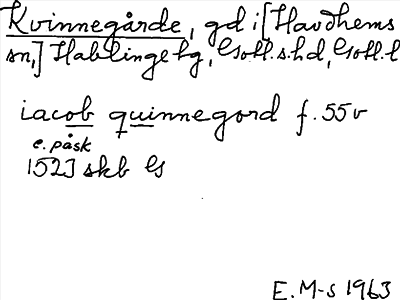 Kvinnegårde, gd i [Havdhems
sn,] Hablinge tg, Gotl.s.hd, Gotl.l
iacob quinnegord f. 55v
e. påsk
1523 skb G
E. M-s 1963